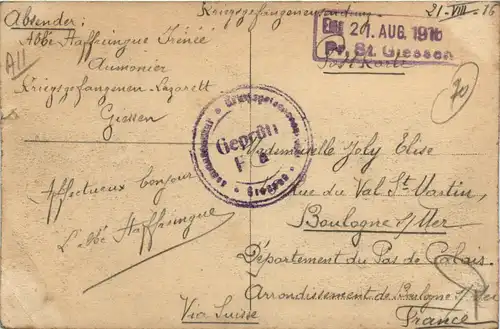 Absender:
Abbé Haffreingue Irénée
Aumonier
Kriegsgefangenen Lazarett
Giessen
A11
Affectueux bonjour
L'Abbé Haffreingue
Via Suisse
Kriegsgefangenensendung
21-VIII-16
21. AUG. 1916
Pr. St. Giessen
Postkarte
Geprüft
F a
Giessen
Mademoiselle Joly Elise
Rue du Val St Martin,
Boulogne s/Mer
Département du Pas de Calais.
Arrondissement de Boulogne s/Mer
France